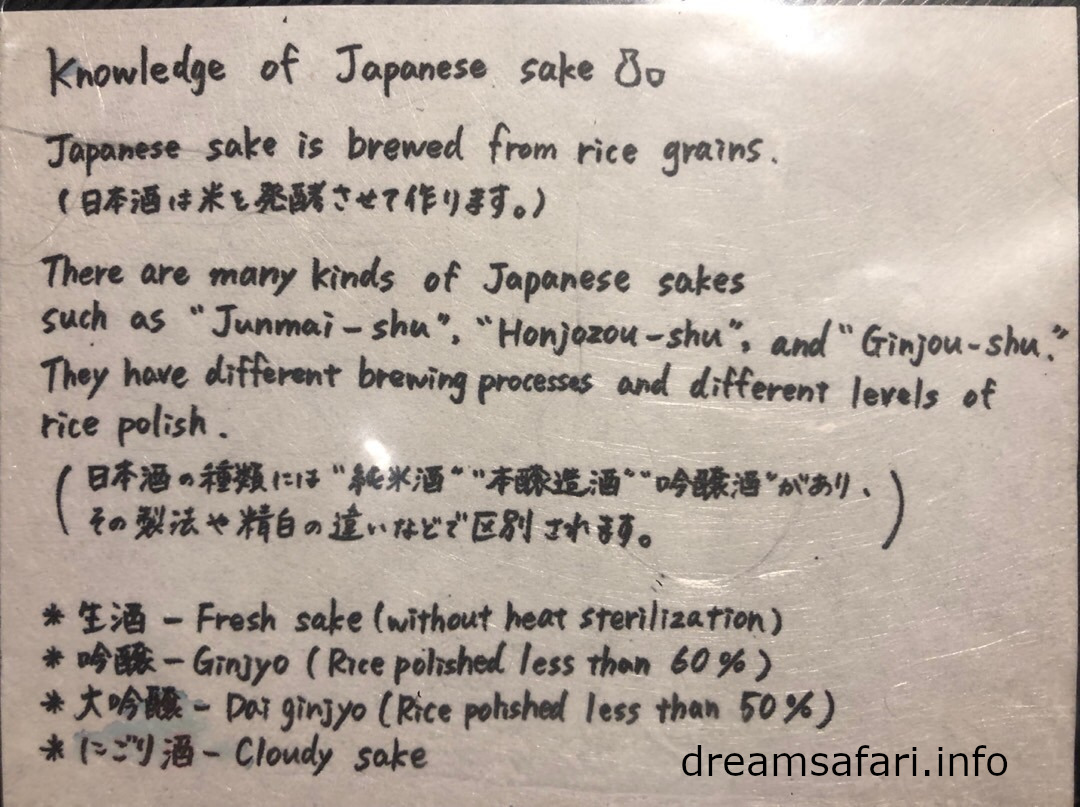 Knowledge of Japanese sake
Japanese sake is brewed from rice grains.
(日本酒は米を発酵させて作ります。)
There are many kinds of Japanese sakes
such as "Junmai-shu", "Honjozou-shu", and "Ginjou-shu."
They have different brewing processes and different levels of
rice polish.
(日本酒の種類には"純米酒""本醸造酒""吟醸酒"があり、
その製法や精白の違いなどで区別されます。)
* 生酒 - Fresh sake (without heat sterilization)
* 吟醸 - Ginjyo (Rice polished less than 60%)
* 大吟醸 - Dai ginjyo (Rice polished less than 50%)
* にごり酒 - Cloudy sake
dreamsafari.info